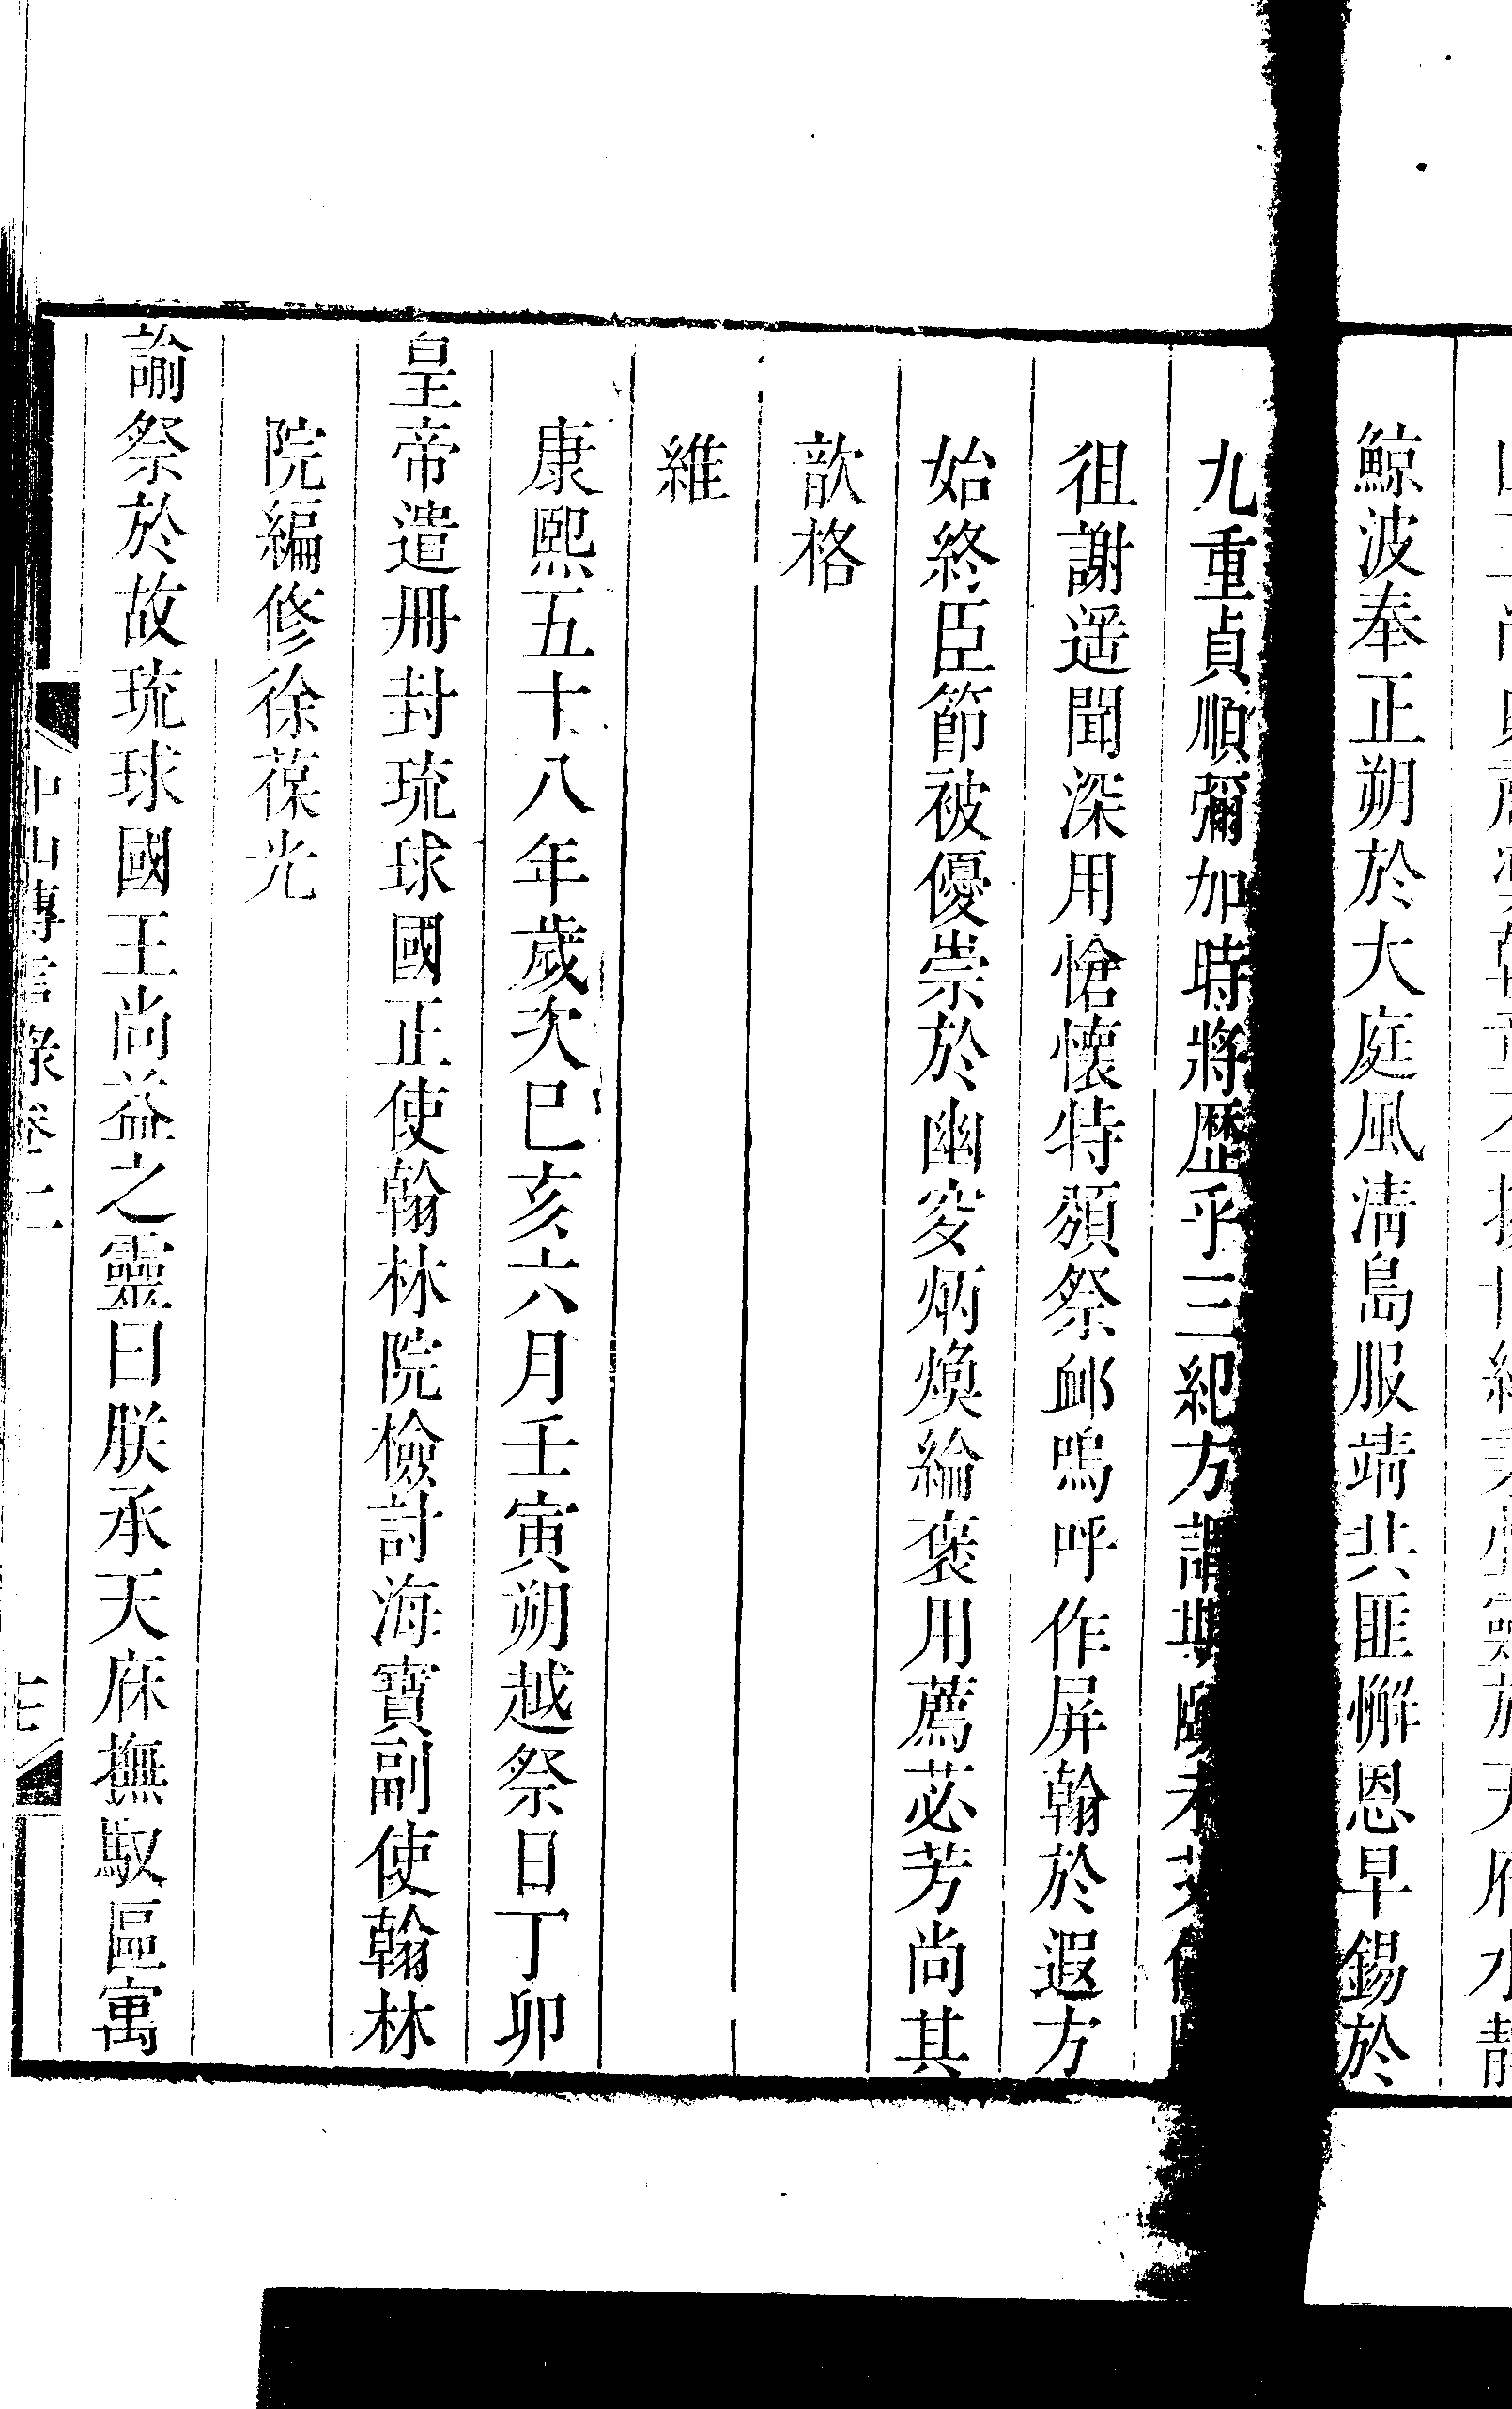 鯨波奉正朔於大庭風淸島服靖共匪懈恩早錫於
九重貞順彌加時將歷乎三紀方謂期頤未艾
徂謝遥聞深用愴懷特頒祭䘏嗚呼作屏翰於遐方
始終臣節被優崇於幽穸炳煥綸褒用薦苾芳尚其
歆格
維
康熙五十八年歲次巳亥六月壬寅朔越祭日丁卯
皇帝遣冊封琉球國正使翰林院檢討海寶副使翰林
院編修徐葆光
諭祭於故琉球國王尚益之靈曰朕承天庥撫馭區寓
中山傳信錄卷二